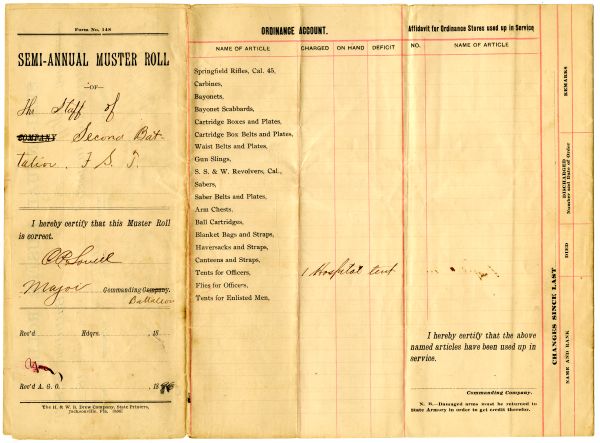 Form No. 148
SEMI-ANNUAL MUSTER ROLL
—OF—
The Staff of
COMPANY Second Bat-
talion. F. S. T.
I hereby certify that this Muster Roll
is correct.
Major Commanding Company.
Battalion
Rec'd Hdqrs. 18
Rec'd A. G. O. 18
The H. & W. B. Drew Company, State Printers,
Jacksonville, Fla.
ORDINANCE ACCOUNT.
NAME OF ARTICLE CHARGED ON HAND DEFICIT
Springfield Rifles, Cal. 45,
Carbines,
Bayonets,
Bayonet Scabbards,
Cartridge Boxes and Plates,
Cartridge Box Belts and Plates,
Waist Belts and Plates,
Gun Slings,
S. S. & W. Revolvers, Cal.,
Sabers,
Saber Belts and Plates,
Arm Chests,
Ball Cartridges,
Blanket Bags and Straps,
Haversacks and Straps,
Canteens and Straps,
Tents for Officers, 1 Hospital tent
Flies for Officers,
Tents for Enlisted Men,
Affidavit for Ordinance Stores used up in Service
NO. NAME OF ARTICLE
I hereby certify that the above
named articles have been used up in
service.
Commanding Company.
N. B.—Damaged arms must be returned to
State Armory in order to get credit therefor.
CHANGES SINCE LAST
NAME AND RANK
DIED
DISCHARGED
Number and Date of Order
REMARKS